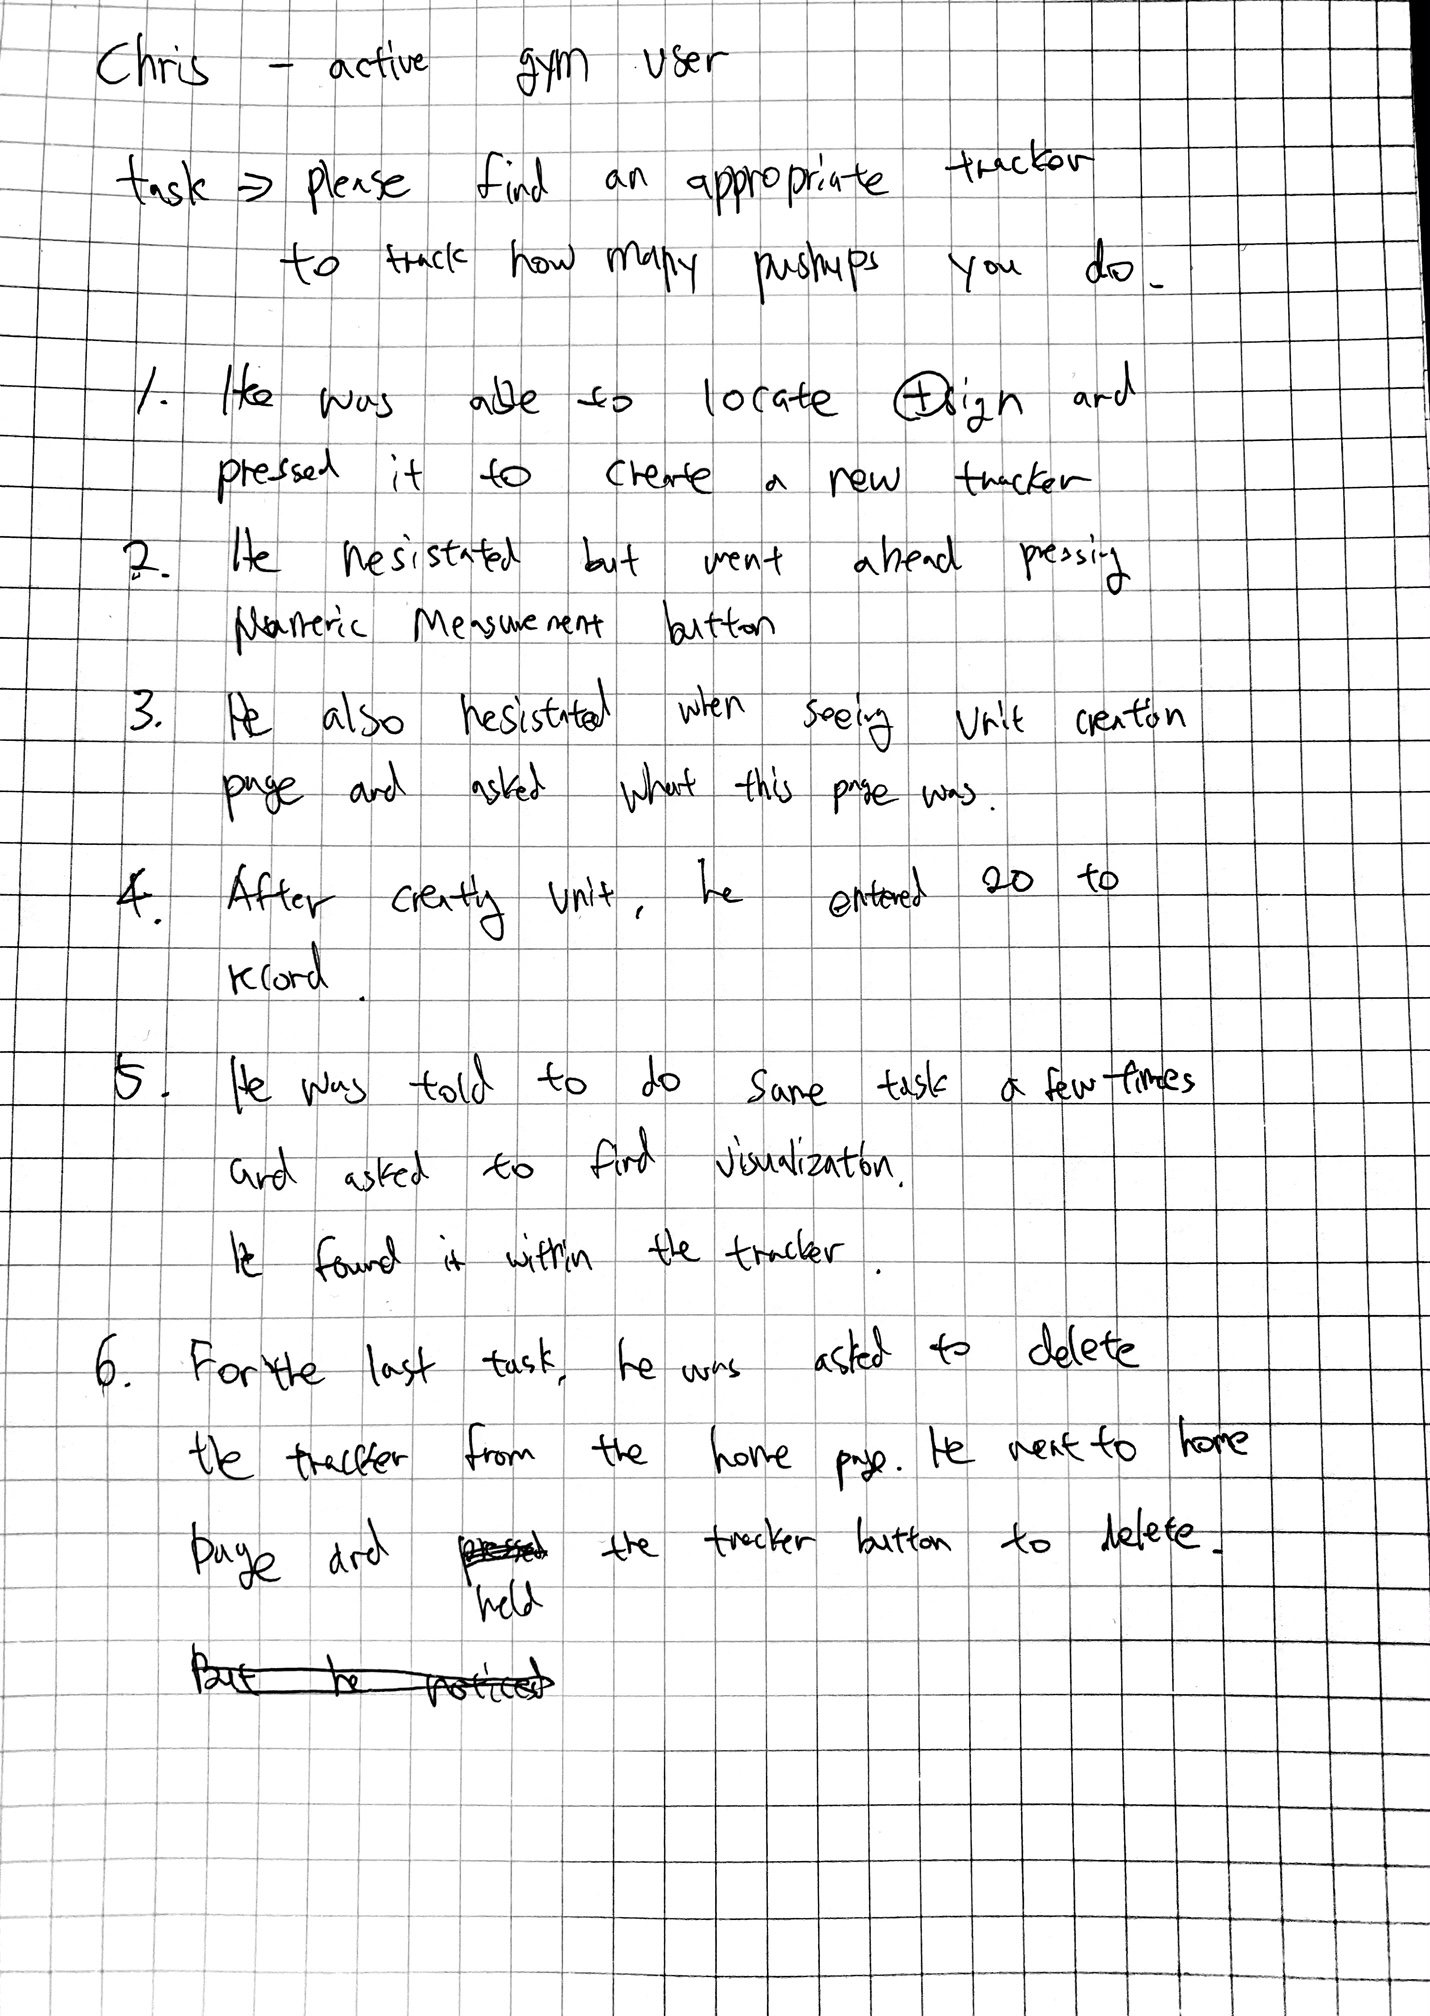 Chris - active gym user
task ⇒ please find an appropriate tracker
to track how many pushups you do.
1. He was able to locate ⊕sign and
pressed it to create a new tracker
2. He hesistated but went ahead pressing
Numeric Measurement button
3. He also hesistated when seeing unit creation
page and asked what this page was.
4. After creating unit, he entered 20 to
record.
5. He was told to do same task a few times
and asked to find visualization.
He found it within the tracker.
6. For the last task, he was asked to delete
the tracker from the home page. He went to home
page and pressed the tracker button to delete.
held
But he noticed